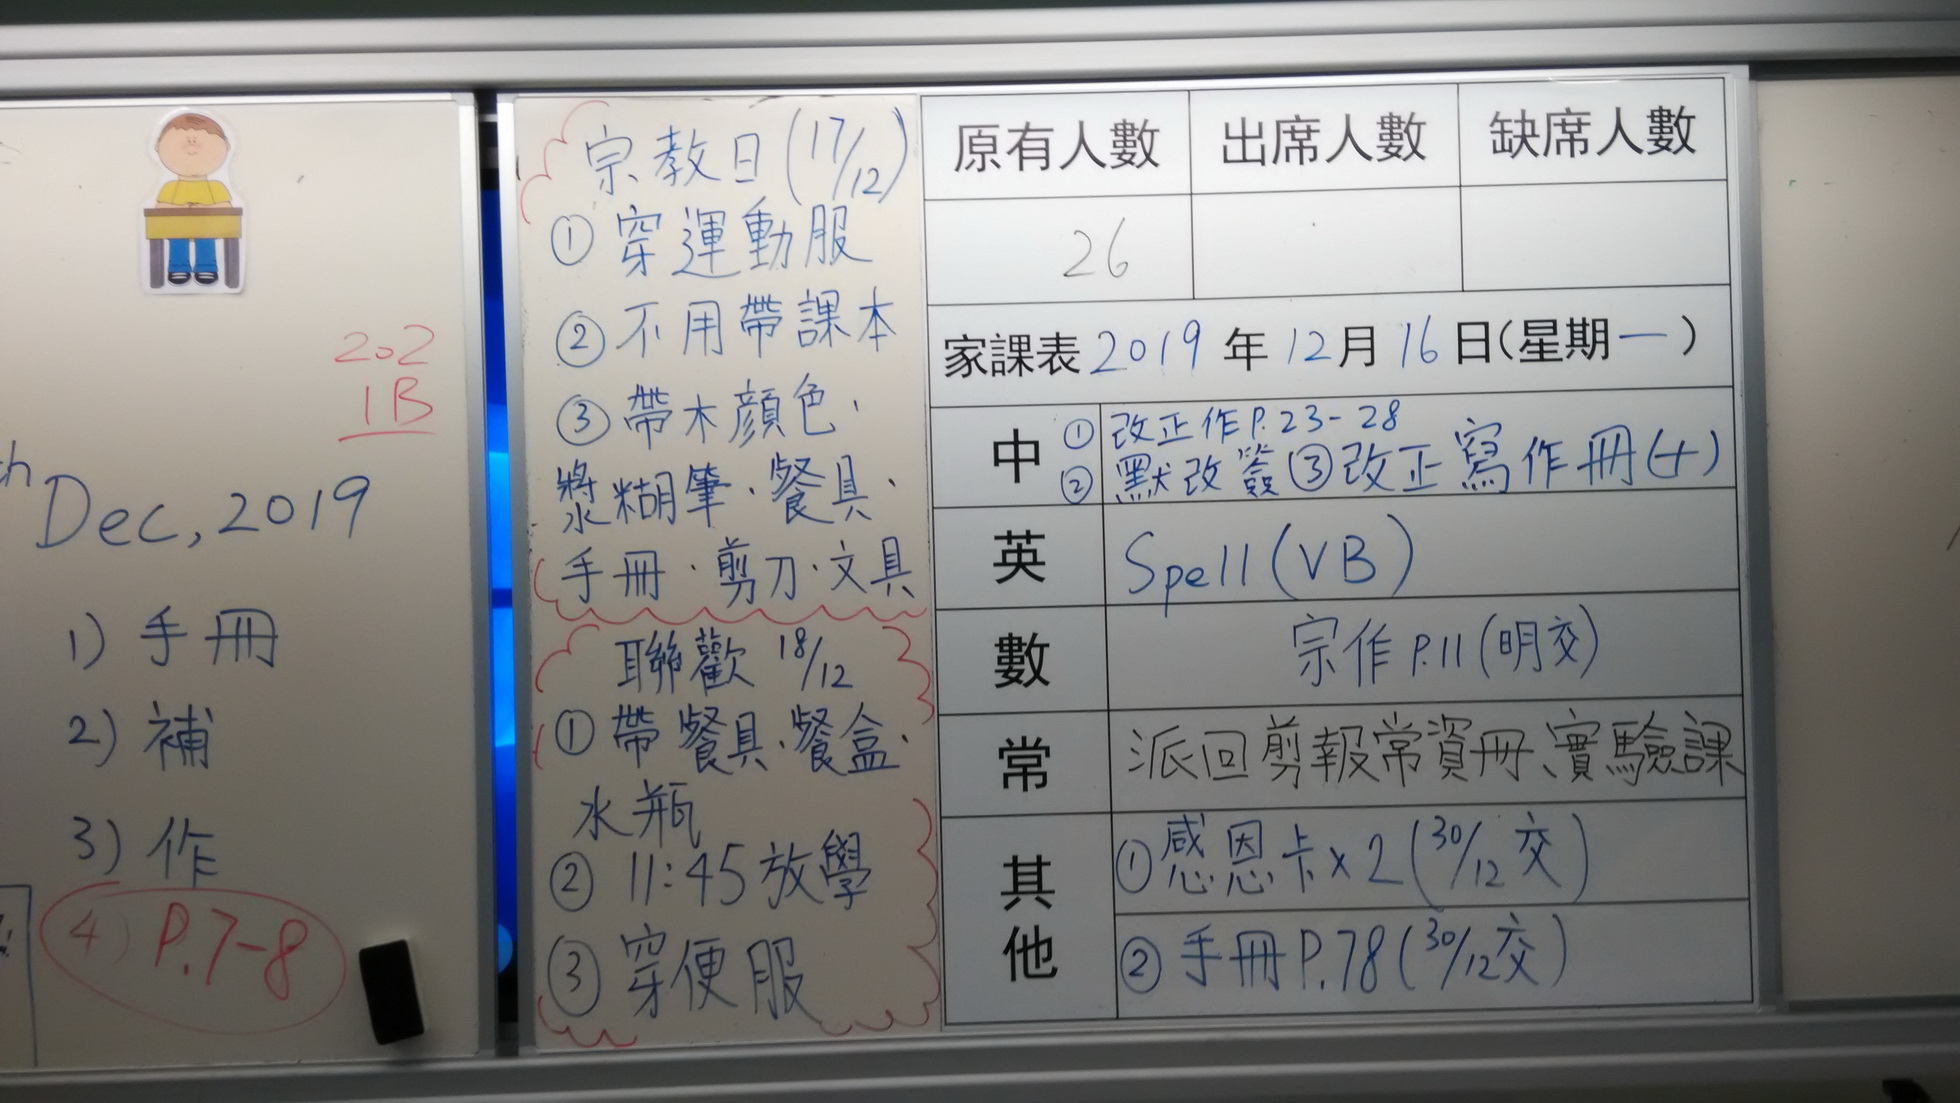 202
1B
Dec, 2019
1) 手冊
2) 補
3) 作
4) P.7-8
宗教日(17/12)
① 穿運動服
② 不用帶課本
③ 帶木顏色、
漿糊筆、餐具、
手冊、剪刀、文具
聯歡 18/12
① 帶餐具、餐盒、
水瓶
② 11:45放學
③ 穿便服
原有人數 出席人數 缺席人數
26
家課表 2019 年 12 月 16 日(星期一)
中 ① 改正作P.23-28
② 默改簽 ③改正寫作冊(十)
英 Spell (VB)
數 宗作P.11(明交)
常 派回剪報常資冊、實驗課
其他 ①感恩卡x2(30/12交)
② 手冊P.78(30/12交)